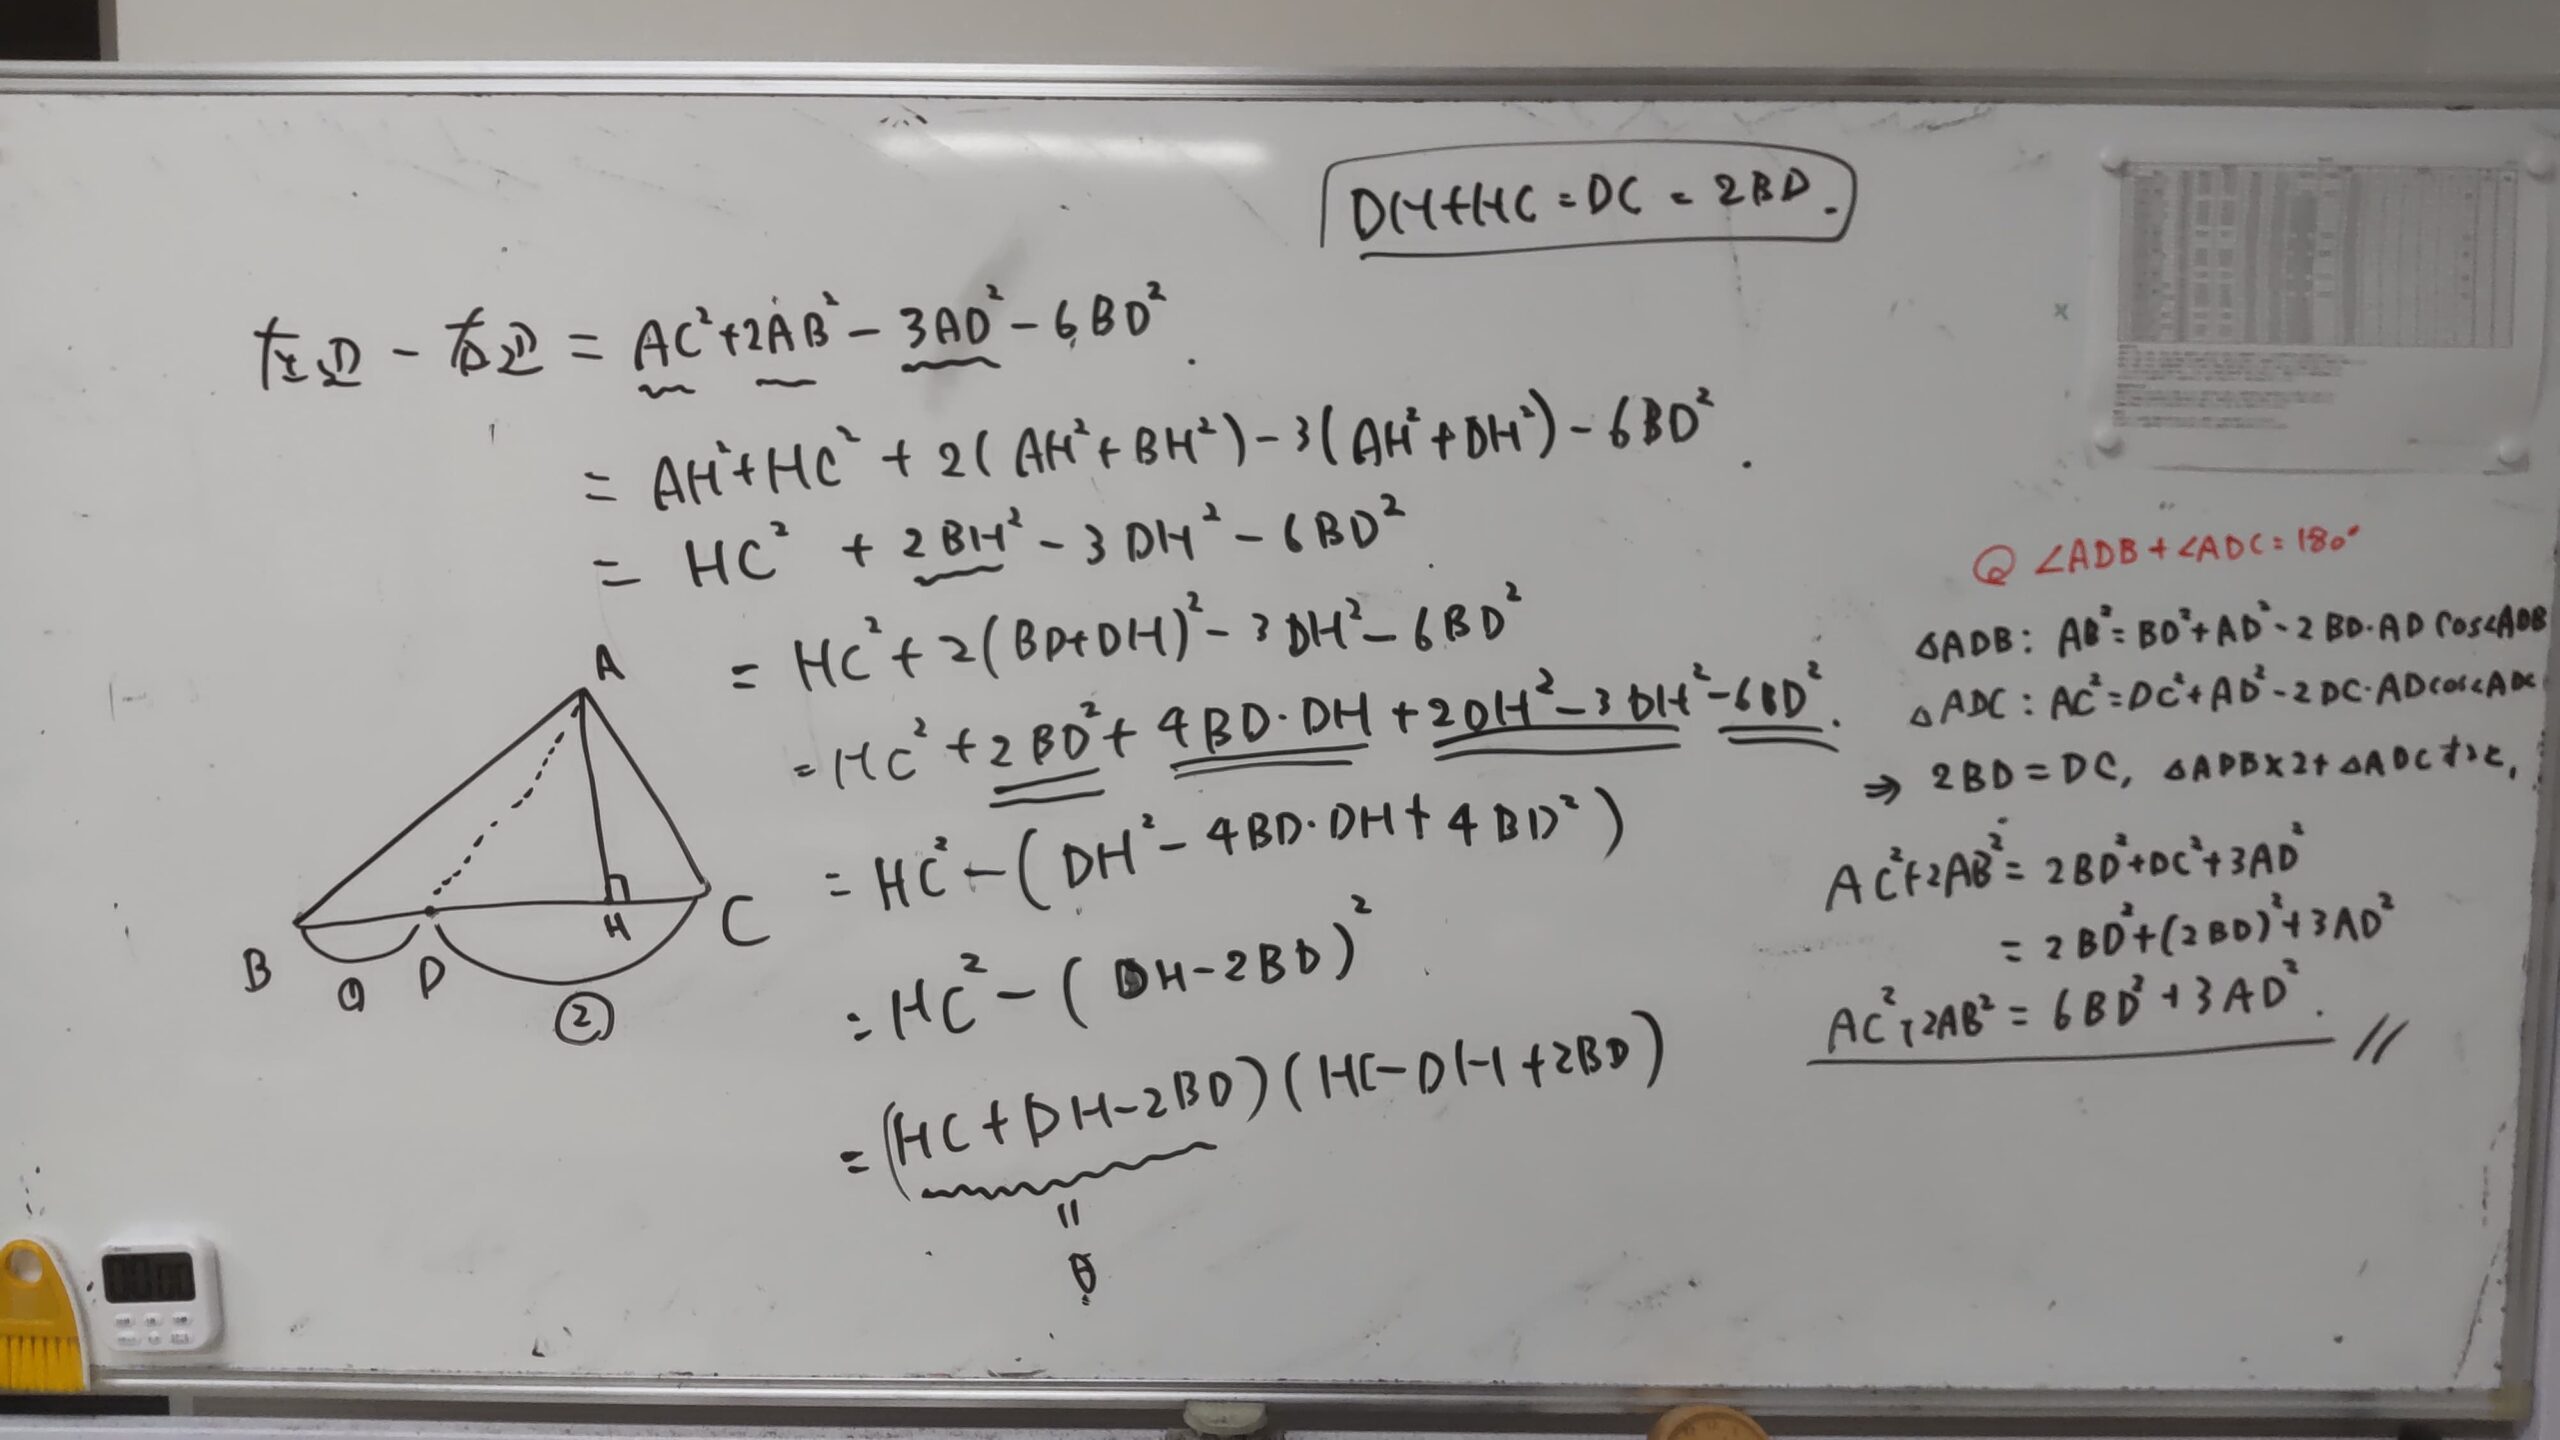 DH+HC=DC=2BD.
左辺-右辺=AC²+2AB²-3AD²-6BD².
=AH²+HC²+2(AH²+BH²)-3(AH²+DH²)-6BD².
=HC²+2BH²-3DH²-6BD².
=HC²+2(BD+DH)²-3DH²-6BD²
=HC²+2BD²+4BD・DH+2DH²-3DH²-6BD².
=HC²-(DH²-4BD・DH+4BD²)
=HC²-(DH-2BD)²
=(HC+DH-2BD)(HC-DH+2BD)
=
0
A
B
D
H
C
①
②
∠ADB+∠ADC=180°
△ADB: AB²=BD²+AD²-2BD・AD cos∠ADB
△ADC: AC²=DC²+AD²-2DC・AD cos∠ADC
⇒ 2BD=DC, △ADB×2+△ADC
AC²+2AB²=2BD²+DC²+3AD²
=2BD²+(2BD)²+3AD²
AC²+2AB²=6BD²+3AD².//